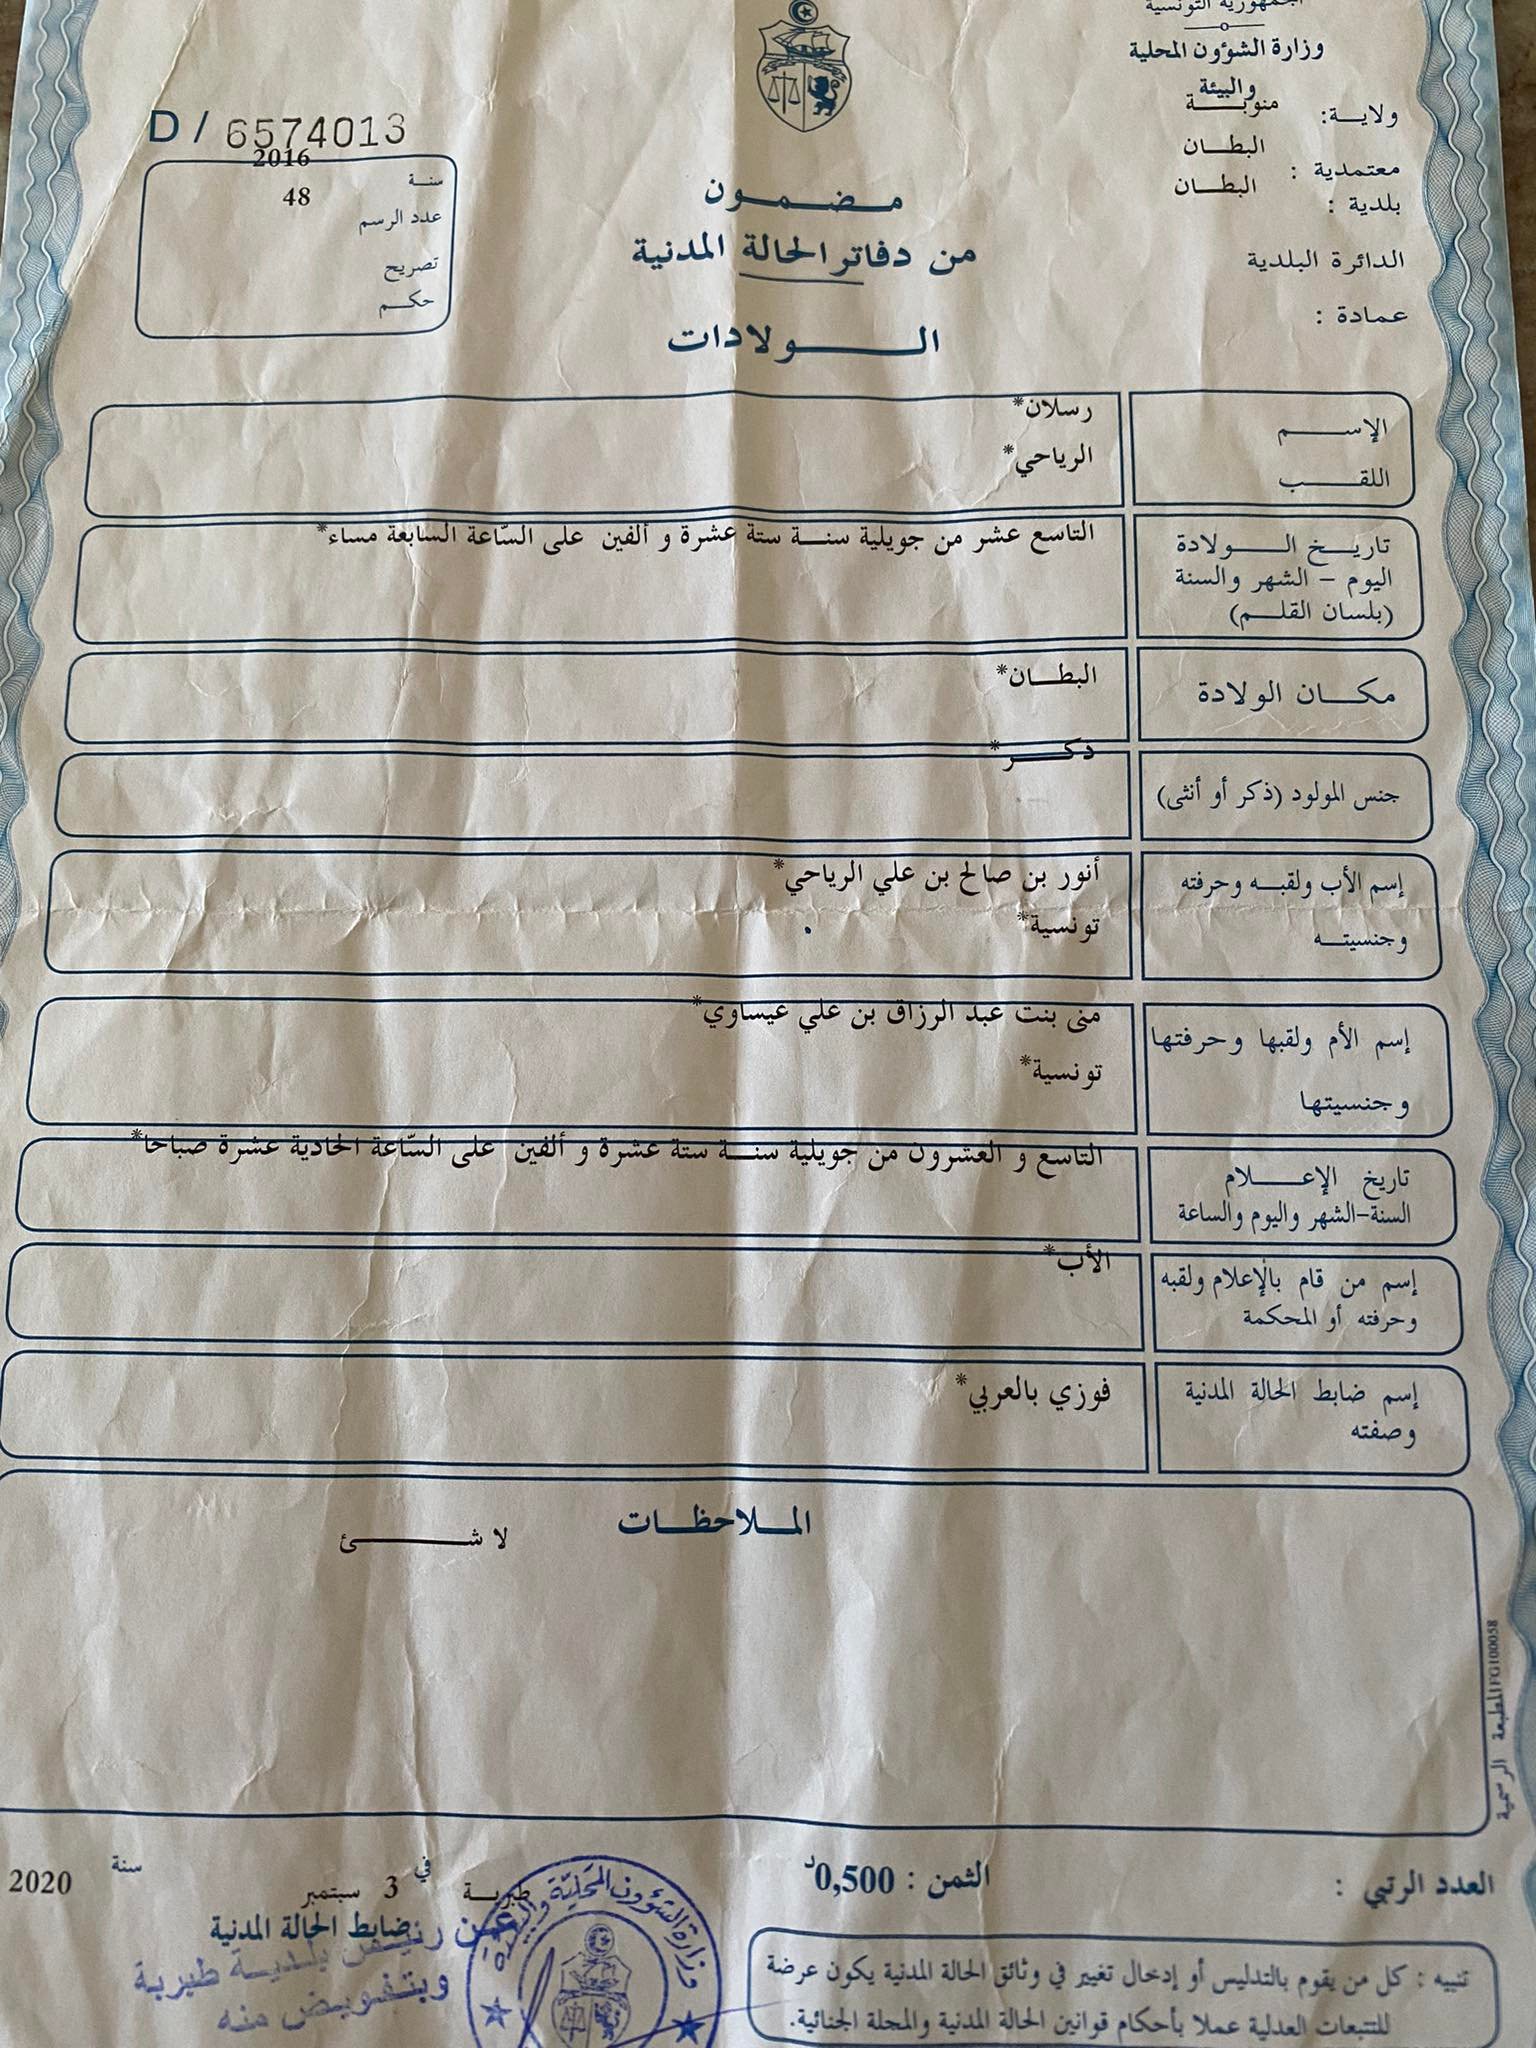 الجمهورية التونسية
وزارة الشؤون المحلية
والبيئة
ولاية: منوبة
معتمدية : البطان
بلدية : البطان
الدائرة البلدية
عمادة :
D / 6574013
سنة 2016
عدد الرسم 48
تصريح
حكم
مضمون
من دفاتر الحالة المدنية
الولادات
الإسم رسلان*
اللقب الرياحي*
تاريخ الولادة التاسع عشر من جويلية سنة ستة عشرة و ألفين على السّاعة السابعة مساء*
اليوم – الشهر والسنة
(بلسان القلم)
مكان الولادة البطان*
جنس المولود (ذكر أو أنثى) ذكر*
إسم الأب ولقبه وحرفته أنور بن صالح بن علي الرياحي*
وجنسيته تونسية*
إسم الأم ولقبها وحرفتها منى بنت عبد الرزاق بن علي عيساوي*
وجنسيتها تونسية*
تاريخ الإعلام التاسع و العشرون من جويلية سنة ستة عشرة و ألفين على السّاعة الحادية عشرة صباحا*
السنة-الشهر واليوم والساعة
إسم من قام بالإعلام ولقبه الأب*
وحرفته أو المحكمة
إسم ضابط الحالة المدنية فوزي بالعربي*
وصفته
الملاحظات
لا شئ
المطبعة الرسمية FG100058
العدد الرتبي :
الثمن : 0,500د
طبربة في 3 سبتمبر سنة 2020
ضابط الحالة المدنية
عن رئيس بلدية طبربة
وبتفويض منه
وزارة الشؤون المحلية والبيئة
تنبيه : كل من يقوم بالتدليس أو إدخال تغيير في وثائق الحالة المدنية يكون عرضة
للتتبعات العدلية عملا بأحكام قوانين الحالة المدنية والمجلة الجنائية.